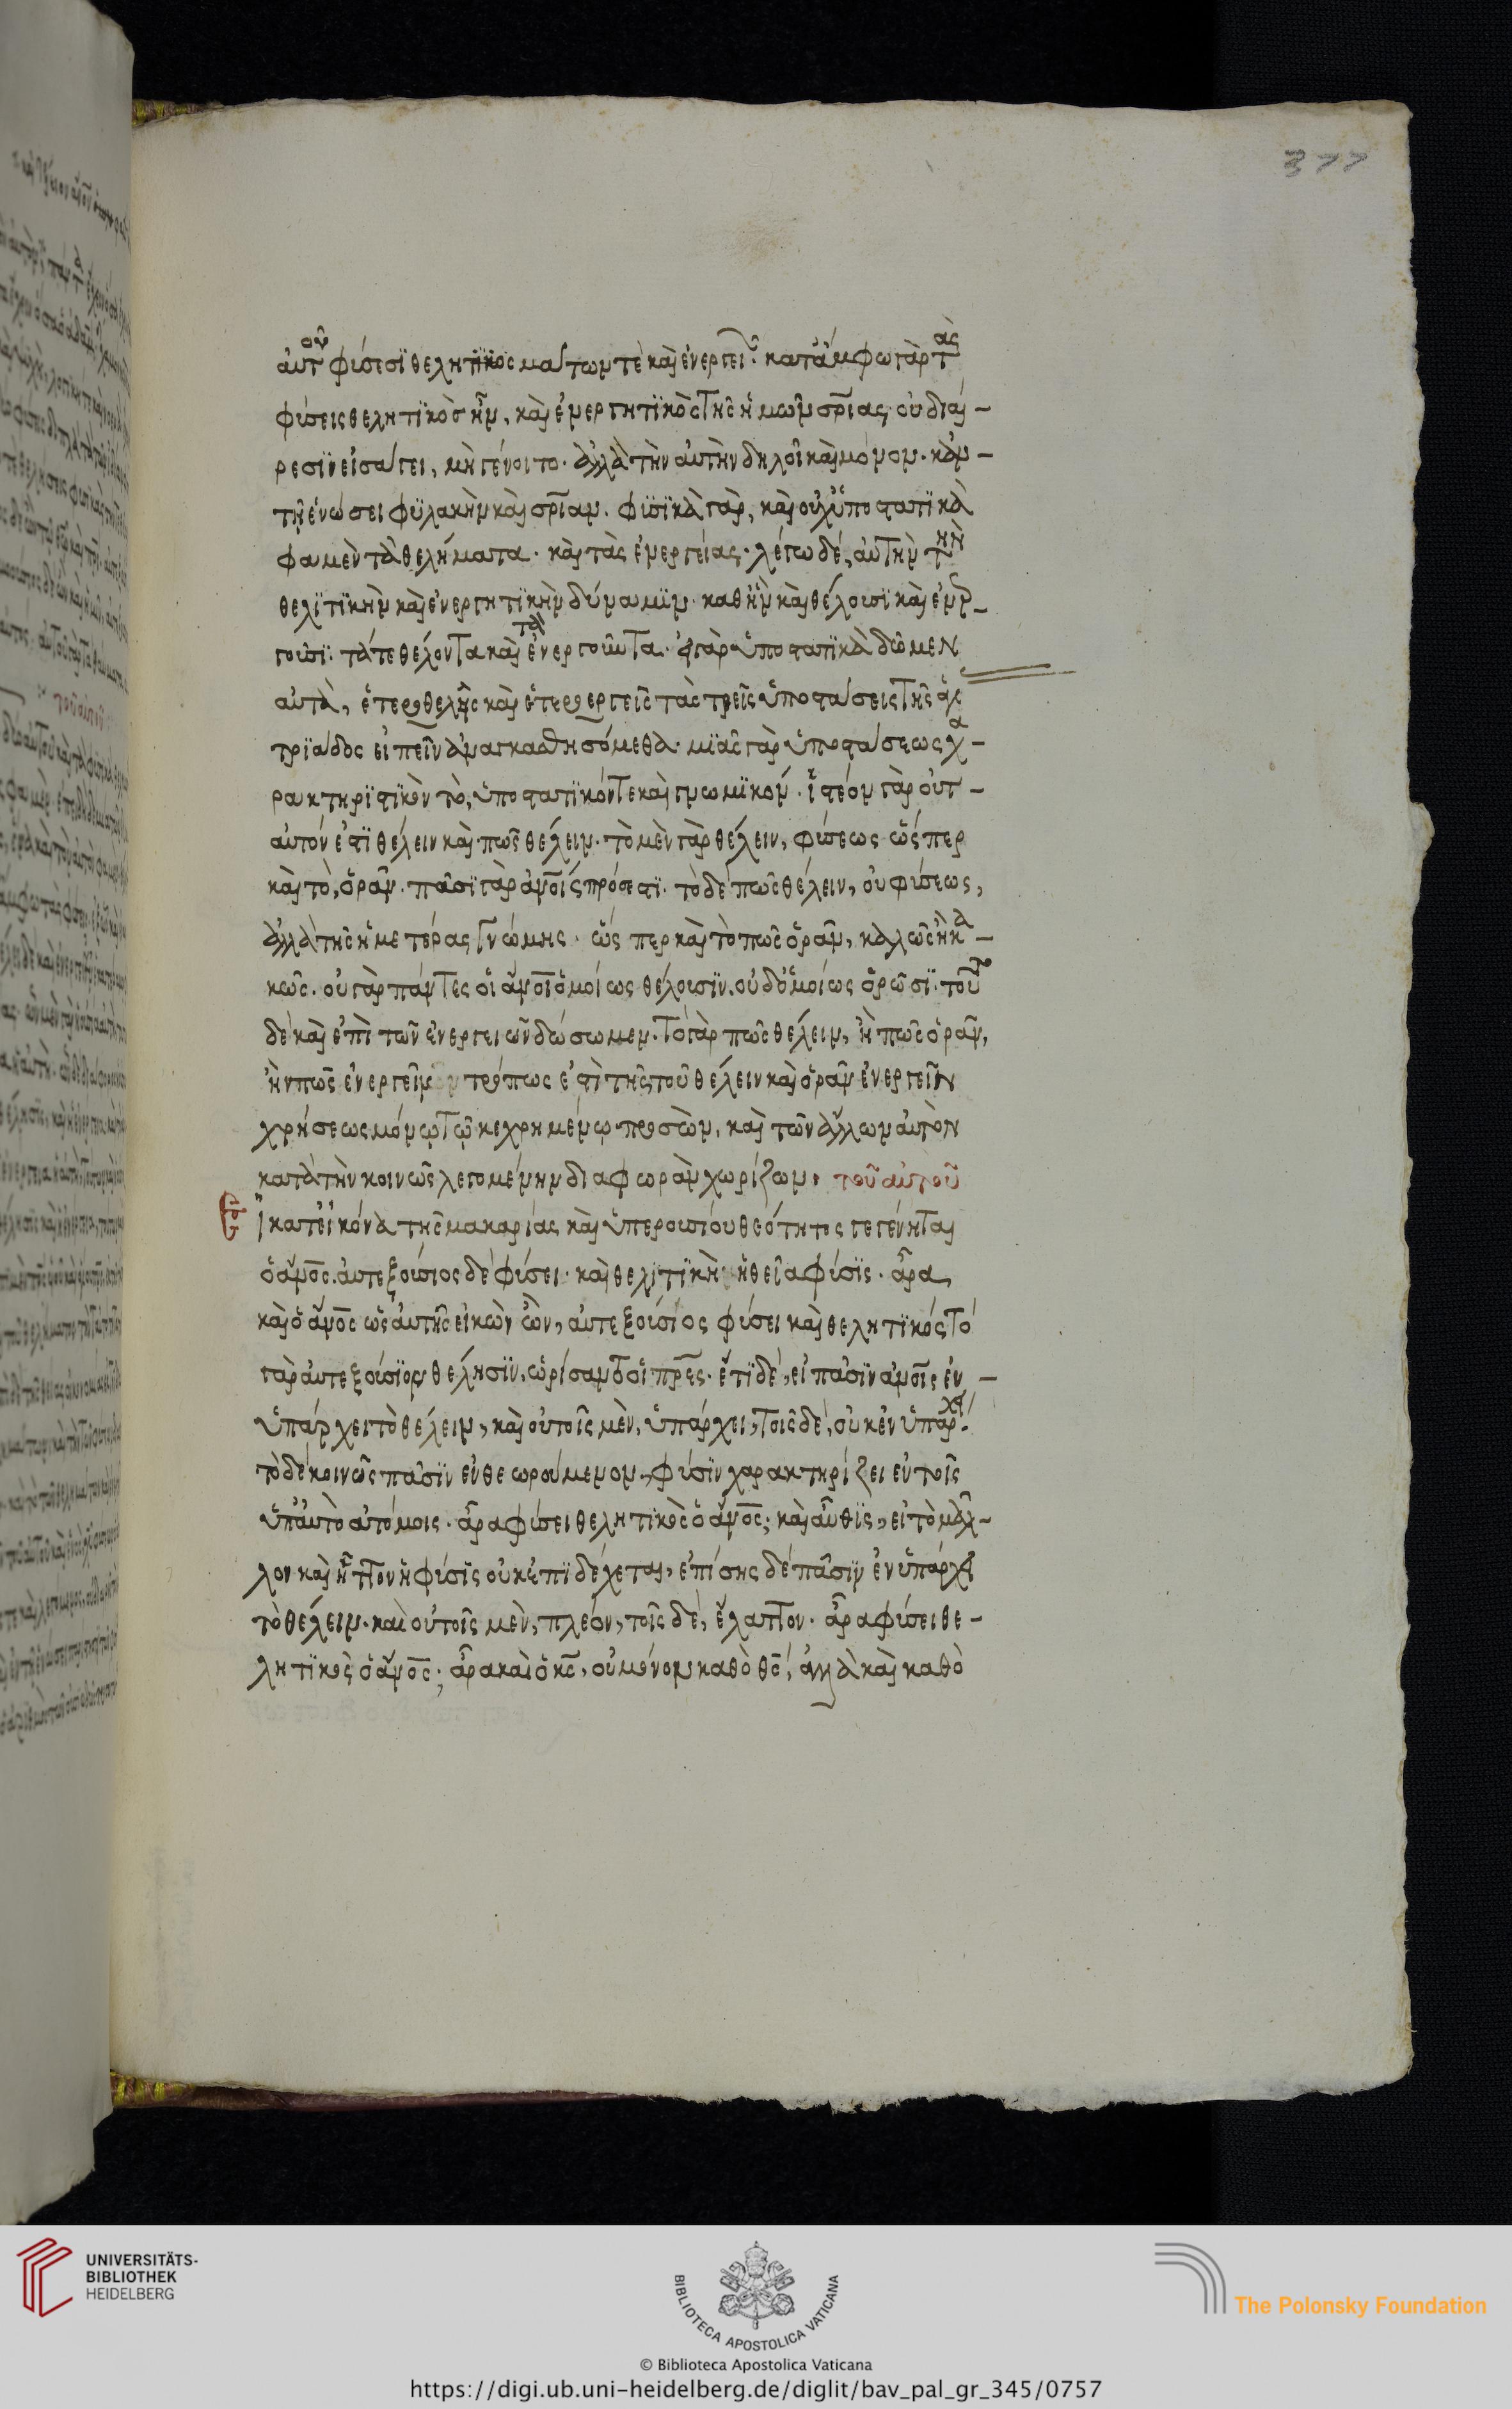 377
αὐτοῦ φύσεσϊ θελητϊκὸς μάτων τὲ καὶ ἐνεργεί· κατάμφω γὰρ τὰς
φύσεις θελητϊκὸς ἦν, καὶ ἐνεργητϊκὸς τῆς ἡμῶν σρίας, οὐ διαί-
ρεσϊν εἰσάγει, μὴ γένοιτο. ἀλλὰ τὴν αὐτὴν δηλοῖ καὶ μόνον. κἀν-
τῇ ἑνώσει φϋλακὴν καὶ σρίαν. φϋσϊκὰ γὰρ, καὶ οὐχ ὑποστατϊκὰ
φαμὲν τὰ θελήματα. καὶ τὰς ἐνεργείας. λέγω δέ, αὐτὴν τὴν
θελϊτϊκὴν καὶ ἐνεργητϊκὴν δύναμϊν. καθ ἣν καὶ θέλουσϊ καὶ ἐνερ-
γοῦσϊ. τά τε θέλοντα καὶ τὰ ἐνεργοῦντα. εἰ γὰρ ὑποστατϊκὰ δῶμεν
αὐτὰ, ἑτεροθελεῖς καὶ ἑτεροεργεῖς τὰς τρεῖς ὑποστάσεις τῆς ἁγ
τρϊάδος εἰπεῖν ἀναγκασθησόμεθα. μϊᾶς γὰρ ὑποστάσεως χα-
ρακτηρϊστϊκὸν τὸ, ὑποστατϊκόν τε καὶ γνωμϊκόν. ἰστέον γὰρ οὐτ-
αὐτόν ἐστϊ θέλειν καὶ πῶς θέλειν. τὸ μὲν γὰρ θέλειν, φύσεως ὥσπερ
καὶ τὸ, ὁρᾶν. πᾶσϊ γὰρ ἀνοῖς πρόσεστϊ. τὸ δὲ πῶς θέλειν, οὐ φύσεως,
ἀλλὰ τῆς ἡμετέρας γνώμης. ὥς περ καὶ τὸ πῶς ὁρᾶν, καλῶς ἢ κα-
κῶς. οὐ γὰρ πάντες οἱ ἄνοι ὁμοίως θέλουσϊν. οὐδ ὁμοίως ὁρῶσϊ. τοῦτο
δὲ καὶ ἐπὶ τῶν ἐνεργειῶν δώσωμεν. τὸ γὰρ πῶς θέλειν, ἢ πῶς ὁρᾶν,
ἢν πῶς ἐνεργεῖν τρόπως ἐστὶ τῆς τοῦ θέλειν καὶ ὁρᾶν ἐνεργεῖν
χρήσεως μόνῳ τῷ κεχρημένῳ προσὼν, καὶ τῶν ἄλλων αὐτὸν
κατὰ τὴν κοινῶς λεγομένην διαφωρὰν χωρίζων. τοῦ αὐτοῦ
Εἰ κατεἰκόνα τῆς μακαρίας καὶ ὑπερουσίου θεότητος γεγένηται
ὁ ἄνος. αὐτεξούσιος δὲ φύσει. καὶ θελϊτϊκὴ ἡ θεῖα φύσϊς. ἆρα
καὶ ὁ ἄνος ὡς αὐτῆς εἰκὼν ὢν, αὐτεξούσϊος φύσει καὶ θελητϊκός τὸ
γὰρ αὐτεξούσϊον θέλησϊν. ὡρίσαντο οἱ πρες. ἔτϊ δὲ, εἰ πᾶσϊν ἀνοις ἐν-
ὑπάρχει τὸ θέλειν, καὶ οὐ τοῖς μὲν, ὑπάρχει, τοῖς δὲ, οὐκ ἐνυπάρχει
τὸ δὲ κοινῶς πᾶσϊν ἐνθεωρούμενον, φύσϊν χαρακτηρίζει ἐν τοῖς
ὑπ αὐτὸ ἀτόμοις. ἆρα φύσει θελητϊκὸς ὁ ἄνος· καὶ αὖθϊς, εἰ τὸ μᾶλ-
λον καὶ ἧττον ἡ φύσϊς οὐκ ἐπϊδέχεται, ἐπίσης δὲ πᾶσϊν ἐνυπάρχει
τὸ θέλειν. καὶ οὐ τοῖς μὲν, πλέον, τοῖς δὲ, ἔλαττον. ἆρα φύσει θε-
λητϊκὸς ὁ ἄνος· ἆρα καὶ ὁ κς, οὐ μόνον καθὸ θς, ἀλλὰ καὶ καθὸ
UNIVERSITÄTS-
BIBLIOTHEK
HEIDELBERG
BIBLIOTECA APOSTOLICA VATICANA
The Polonsky Foundation
© Biblioteca Apostolica Vaticana
https://digi.ub.uni-heidelberg.de/diglit/bav_pal_gr_345/0757